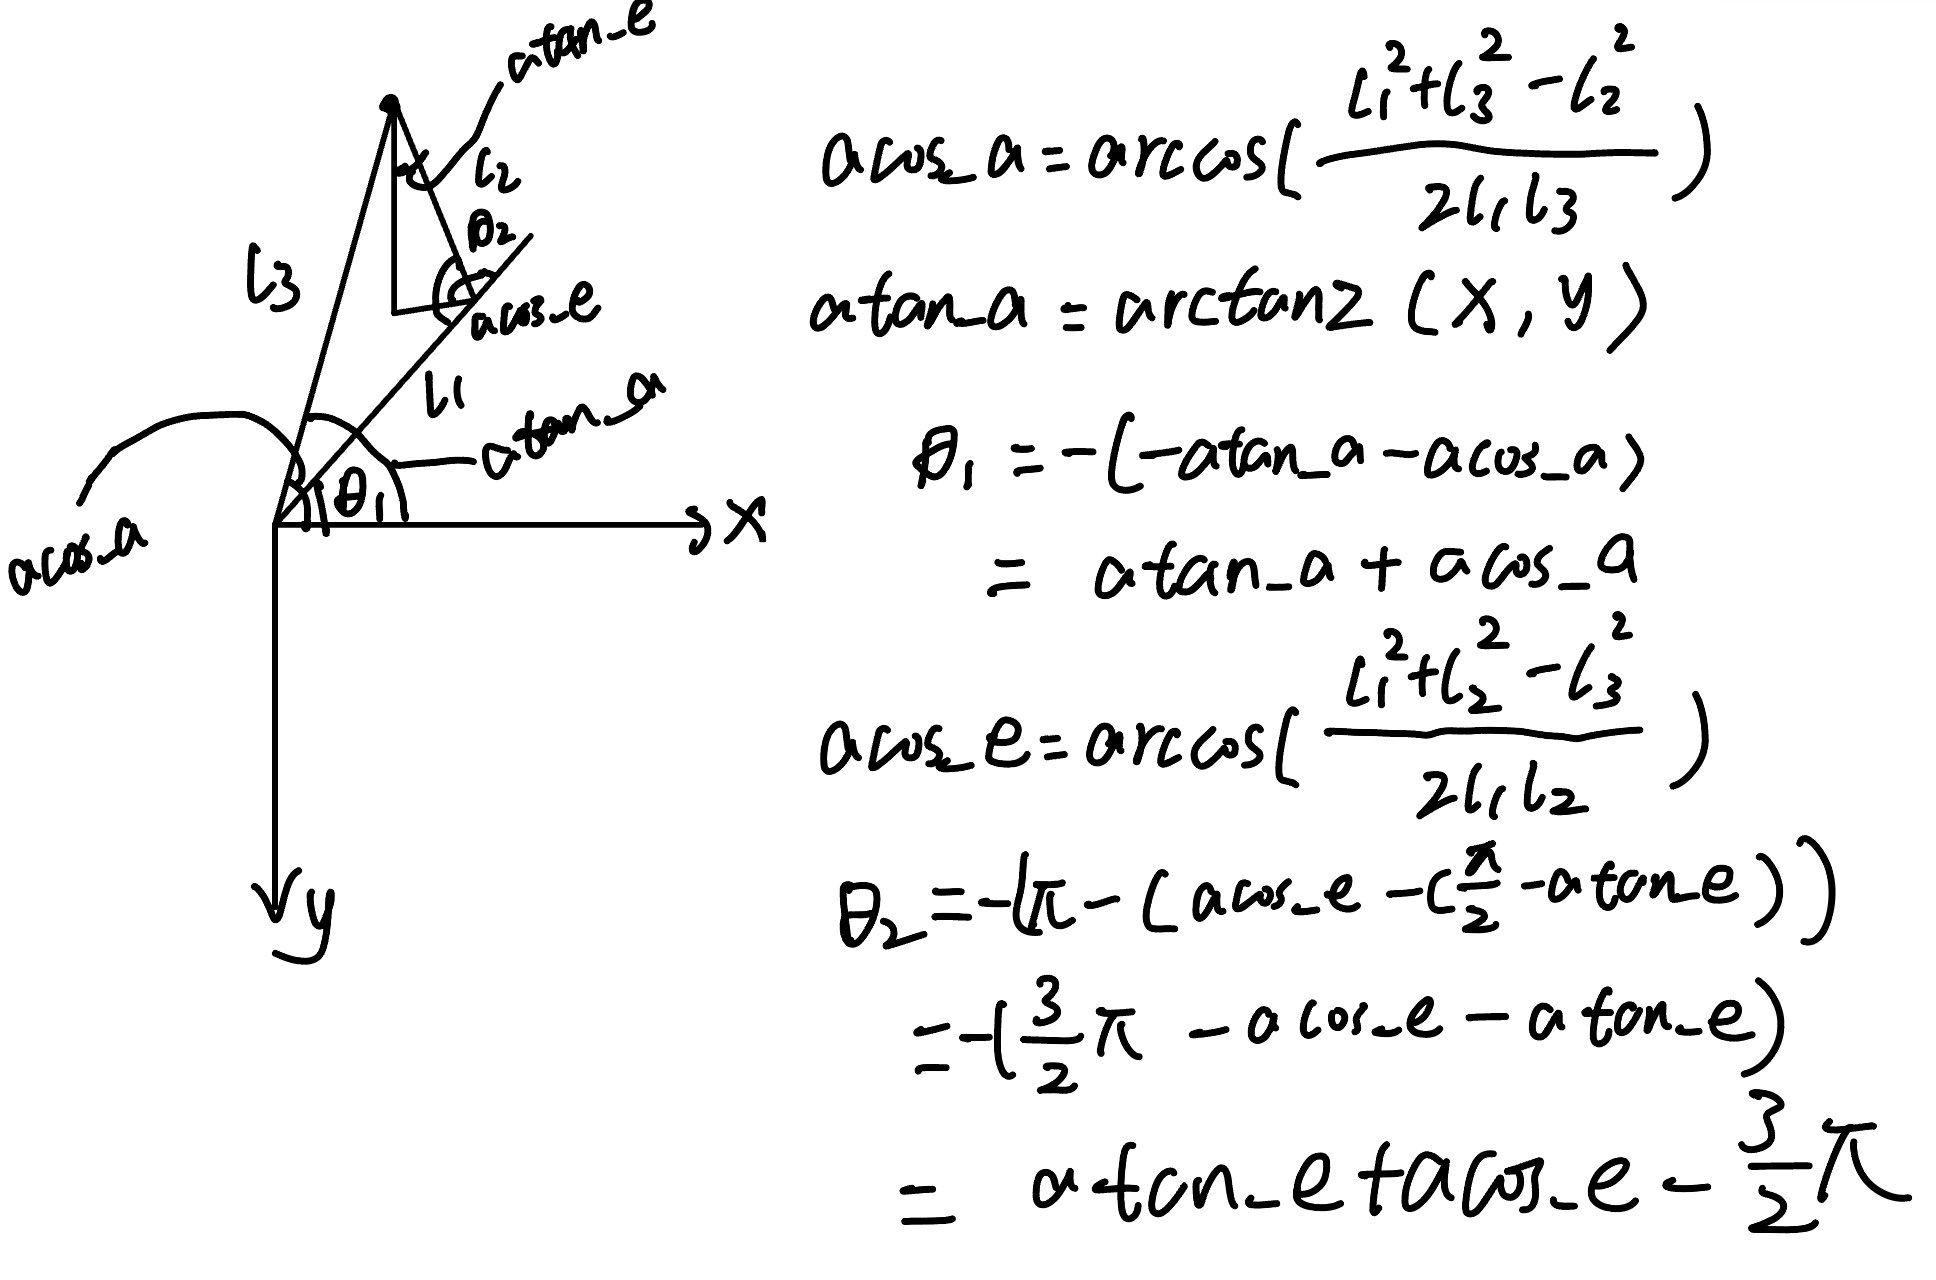 atan_e
l2
θ2
l3
acos_e
l1
atan_a
θ1
x
acos_a
y
acos_a = arccos( (l1²+l3²-l2²) / (2l1l3) )
atan_a = arctan2 (x, y)
θ1 = -(-atan_a - acos_a)
= atan_a + acos_a
acos_e = arccos( (l1²+l2²-l3²) / (2l1l2) )
θ2 = -(π - (acos_e - (π/2 - atan_e)))
= -(3/2 π - acos_e - atan_e)
= atan_e + acos_e - 3/2 π